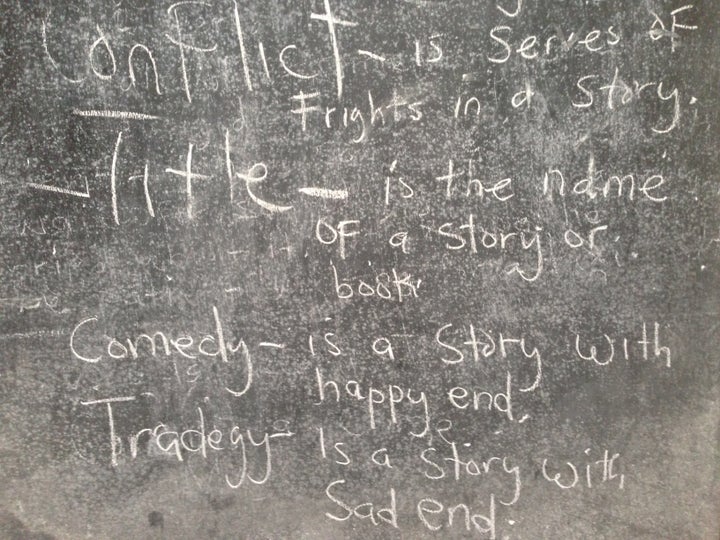 Conflict - is Serves of
Frights in a story.
Title - is the name
of a story or
book
Comedy - is a Story with
happy end.
Tradegy - is a story with
Sad end.